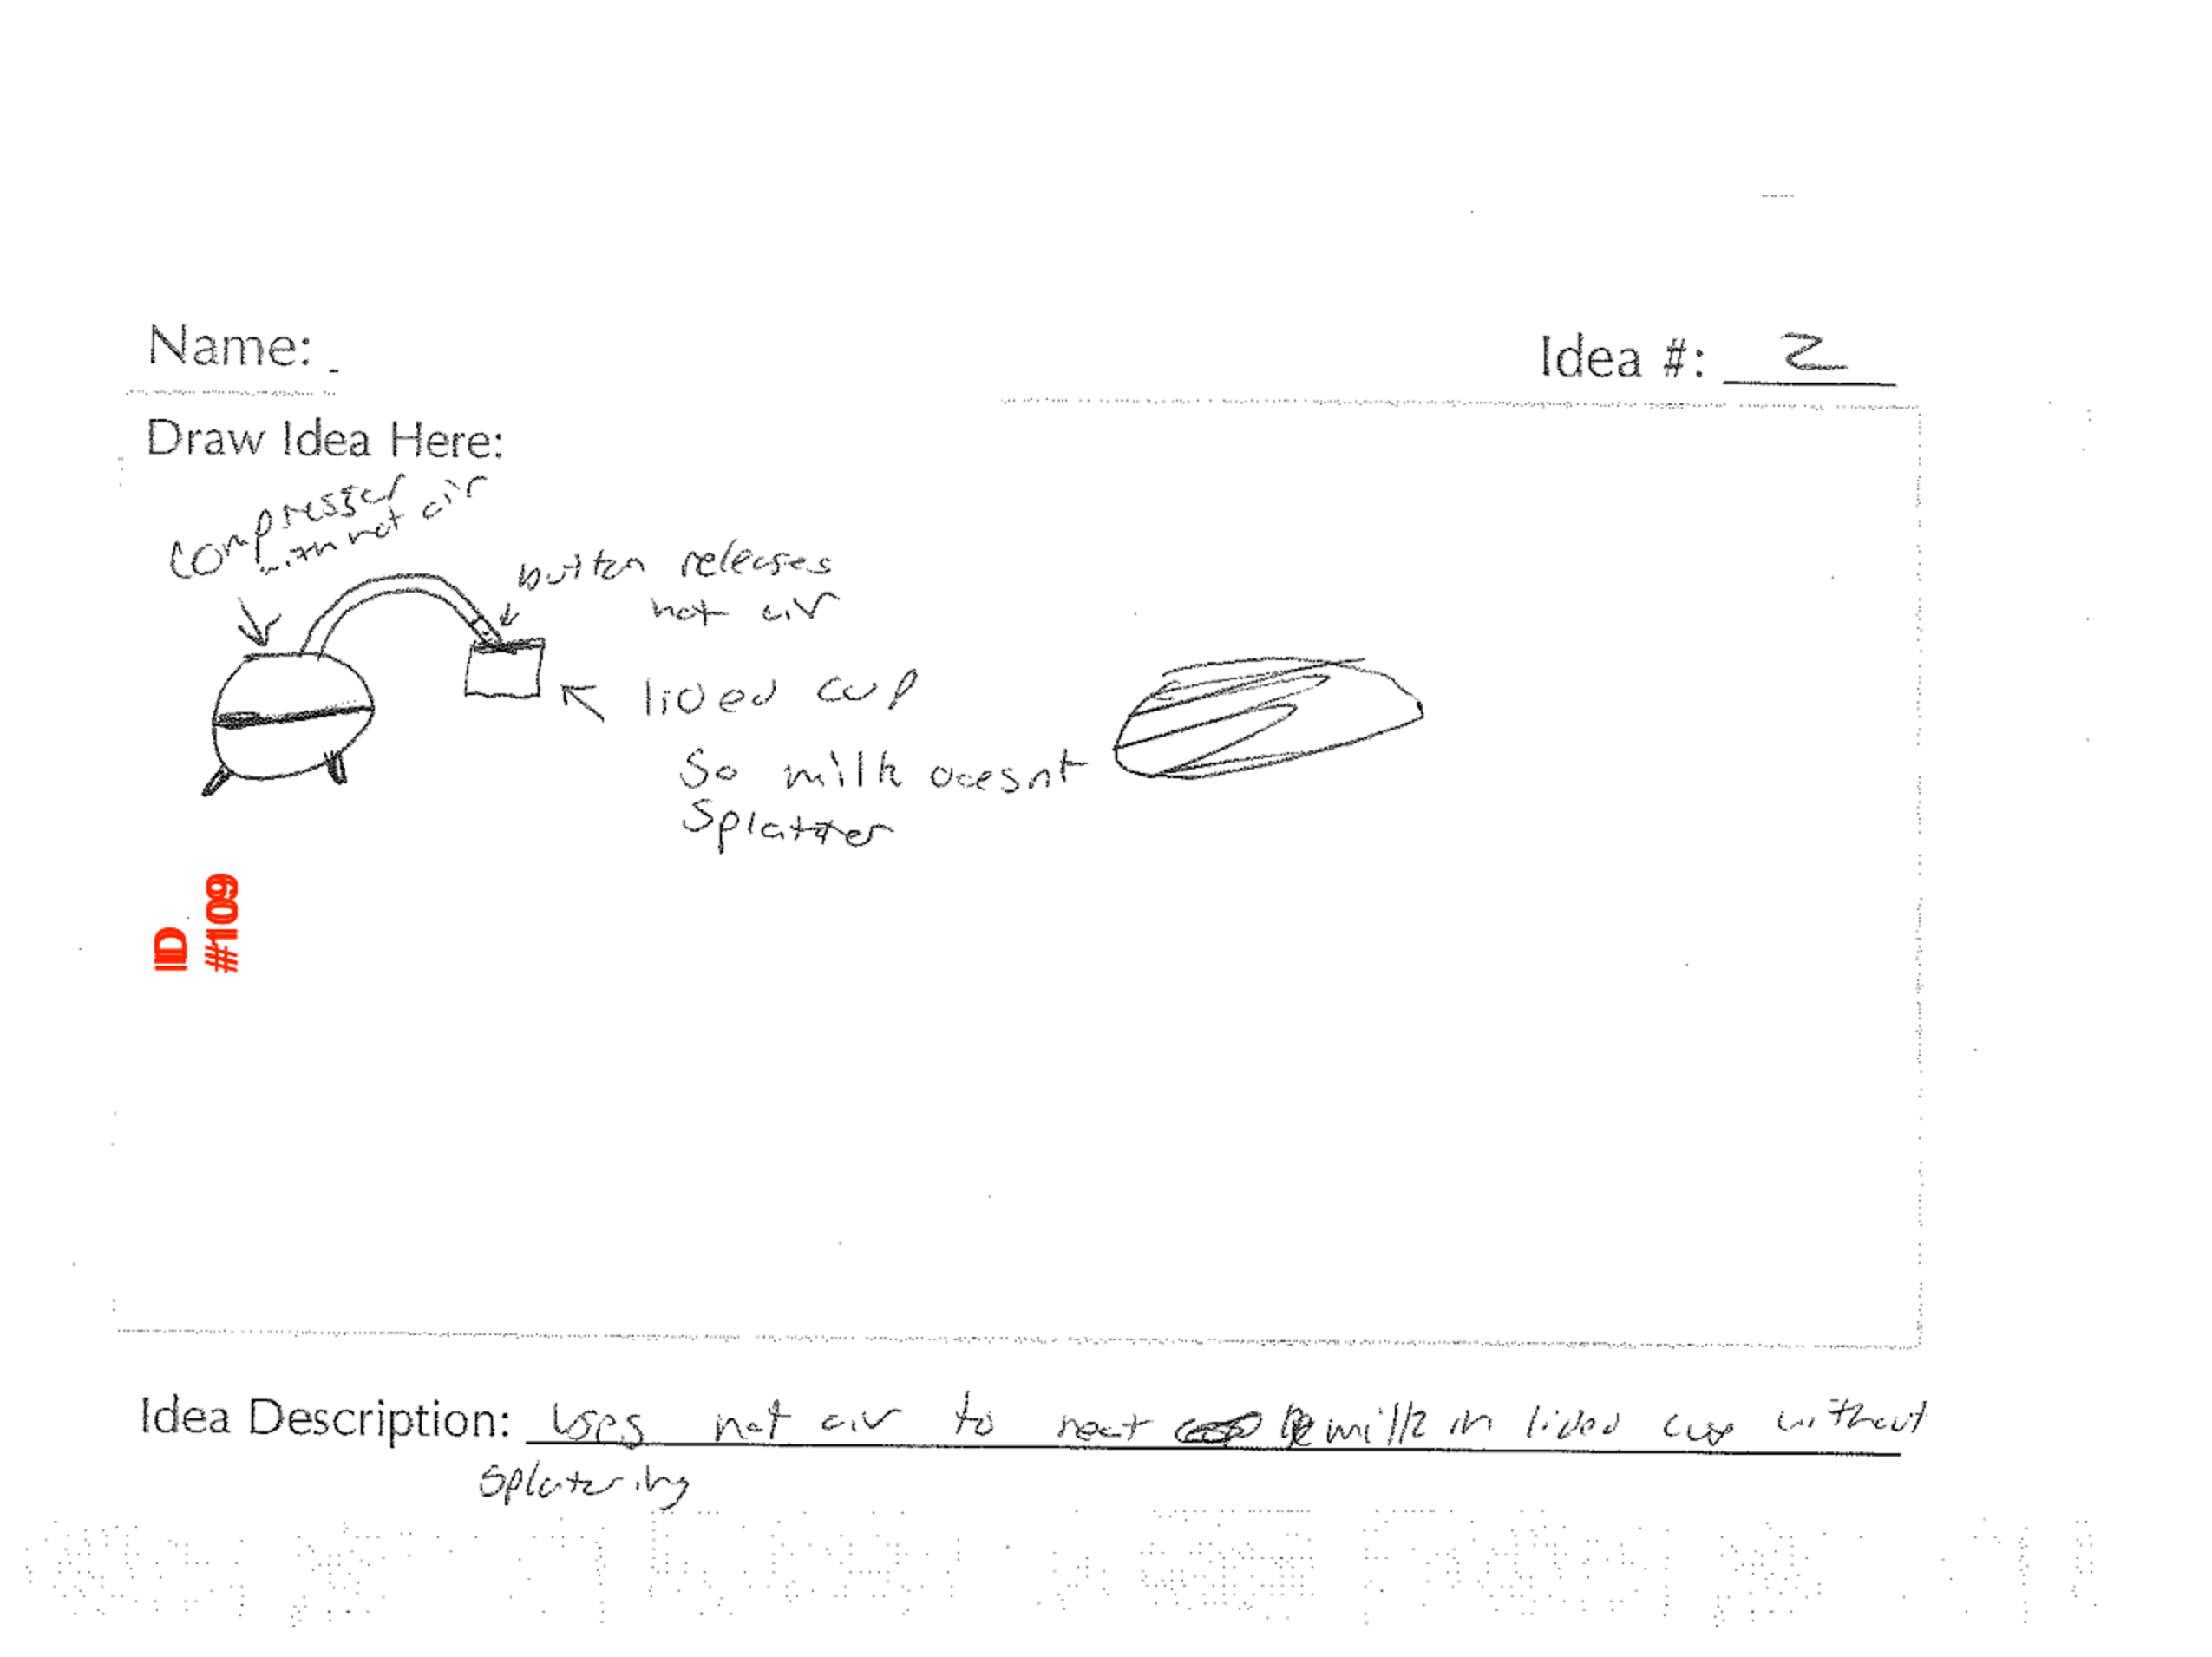 Name:
Idea #: 2
Draw Idea Here:
compresser
with hot air
button releases
hot air
lided cup
So milk doesnt
Splatter
ID
#109
Idea Description: Uses hot air to heat milk in lided cup without
splatering